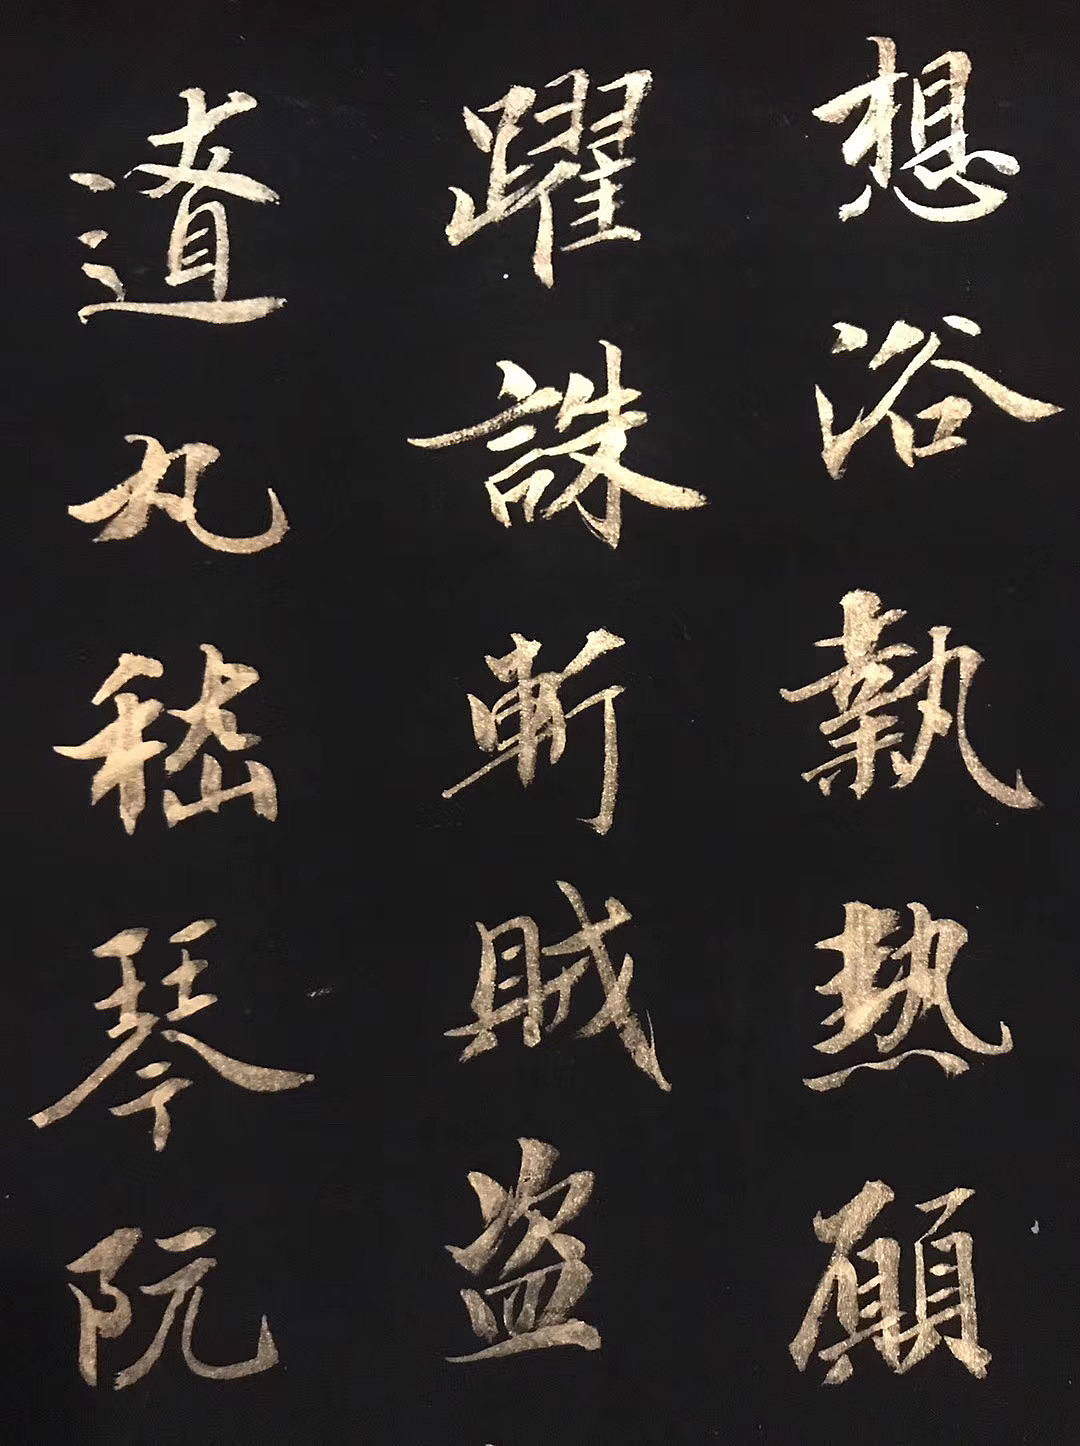 想浴執熱願
躍誅斬賊盜
遼丸嵇琴阮